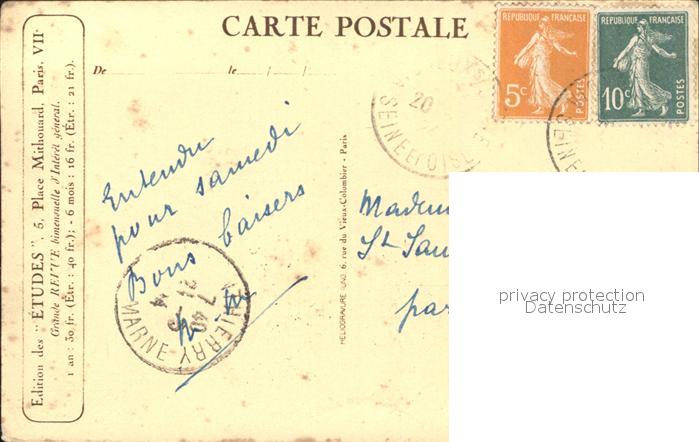 CARTE POSTALE
De le / /
Edition des "ÉTUDES", 5, Place Mithouard, Paris, VII
Grande REVUE bimensuelle d'Intérêt général.
1 an : 30 fr. (Étr. : 40 fr.); - 6 mois : 16 fr. (Étr. : 21 fr.)
REPUBLIQUE FRANÇAISE
5c
POSTES
REPUBLIQUE FRANÇAISE
10c
POSTES
20
SEINE ET OISE
SEINE
Entendu
pour samedi
Bons baisers
THIERRY
MARNE
7 40
21 -4
6, rue du Vieux-Colombier - Paris
Madem
St Sau
par
privacy protection
Datenschutz